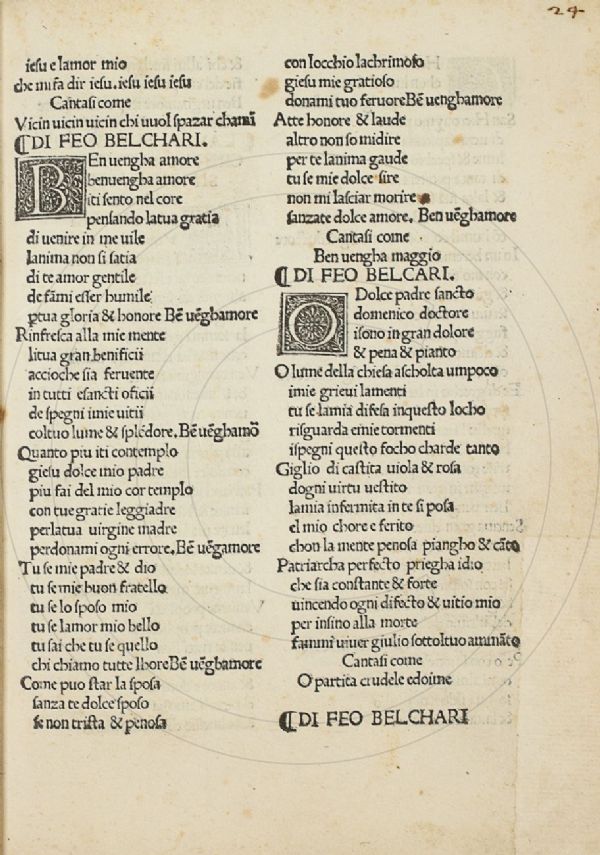 24
iesu e lamor mio
che mi fa dir iesu.iesu iesu iesu
Cantasi come
Vicin uicin uicin chi uuol spazar chamī
¶DI FEO BELCHARI.
BEn uengha amore
benuengha amore
iti sento nel core
pensando latua gratia
di uenire in me uile
lanima non si satia
di te amor gentile
de fāmi esser humile
ꝑtua gloria & honore Bē uēghamore
Rinfresca alla mie mente
litua gran benificii
accioche sia feruente
in tutti esancti oficii
de spegni imie uitii
coltuo lume & splēdore.Bē uēghamō
Quanto piu iti contemplo
giesu dolce mio padre
piu fai del mio cor templo
con tue gratie leggiadre
perlatua uirgine madre
perdonami ogni errore.Bē uēgamore
Tu se mie padre & dio
tu se mie buon fratello
tu se lo sposo mio
tu se lamor mio bello
tu sai che tu se quello
chi chiamo tutte lhore Bē uēghamore
Come puo star la sposa
sanza te dolce sposo
se non trista & penosa
con locchio lachrimoso
giesu mie gratioso
donami tuo feruore Bē uenghamore
Atte honore & laude
altro non so midire
per te lanima gaude
tu se mie dolce sire
non mi lasciar morire
sanzate dolce amore. Ben uēghamore
Cantasi come
Ben uengha maggio
¶DI FEO BELCARI.
O Dolce padre sancto
domenico doctore
isono in gran dolore
& pena & pianto
O lume della chiesa ascholta umpoco
imie grieui lamenti
tu se lamia difesa inquesto locho
risguarda emie tormenti
ispegni questo focho charde tanto
Giglio di castita uiola & rosa
dogni uirtu uestito
lamia infermita in te si posa
el mio chore e ferito
chon la mente penosa piangho & cāto
Patriarcha perfecto priegha idio
che sia constante & forte
uincendo ogni difecto & uitio mio
per insino alla morte
fammi uiuer giulio sottoltuo ammāto
Cantasi come
O partita crudele edoime
¶DI FEO BELCHARI